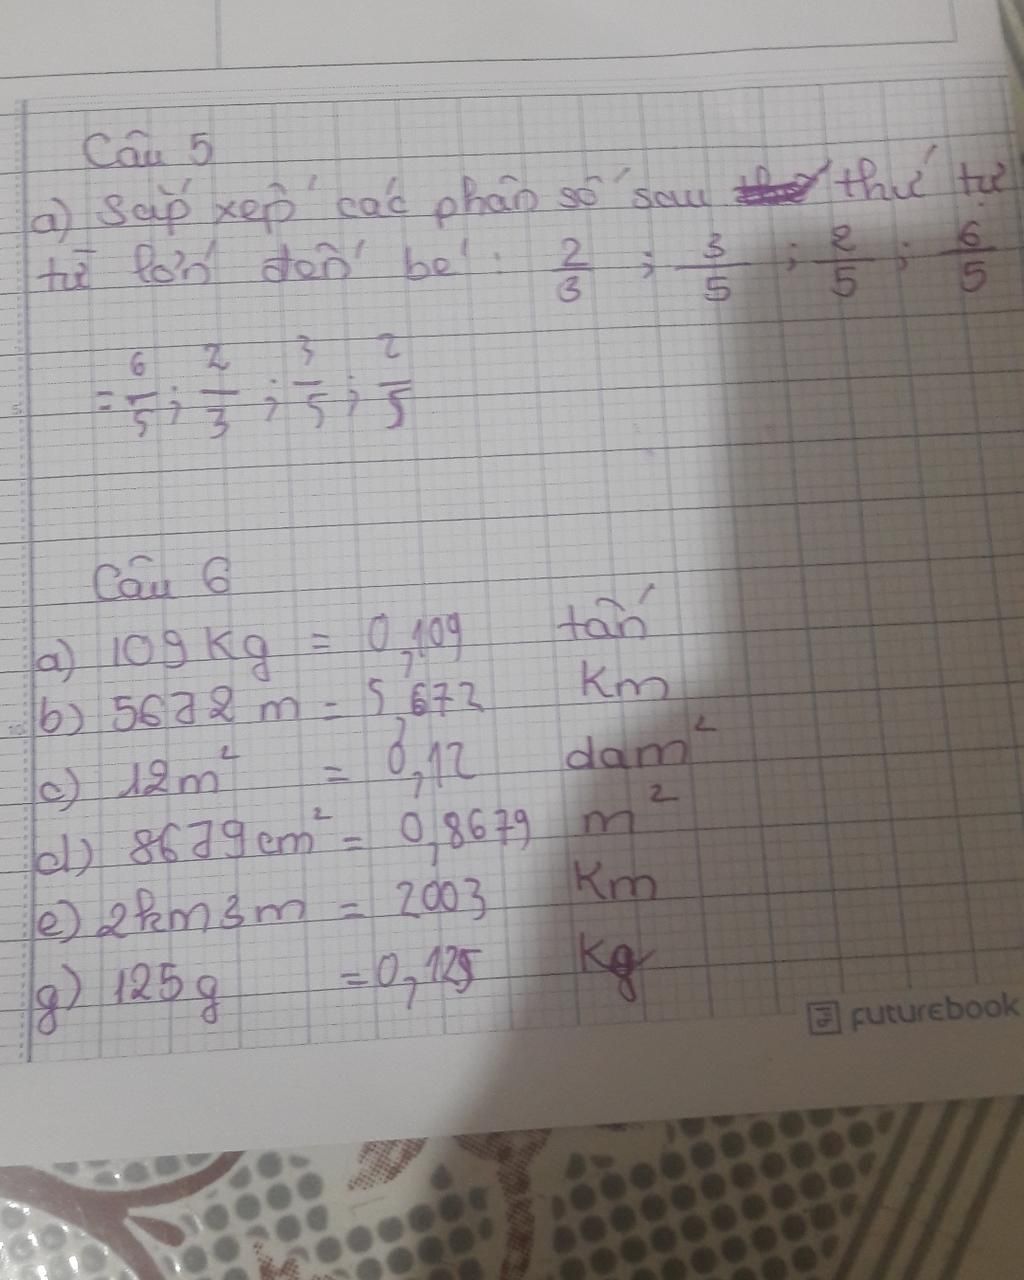 Câu 5
a) Sắp xếp các phân số sau thứ tự
từ lớn đến bé : 2/3 ; 3/5 ; 2/5 ; 6/5
= 6/5 ; 2/3 ; 3/5 ; 2/5
Câu 6
a) 109 Kg = 0,109 tấn
b) 5672 m = 5,672 Km
c) 12m² = 0,12 dam²
d) 8679cm² = 0,8679 m²
e) 2km3m = 2003 Km
g) 125g = 0,125 Kg
FUTUREBOOK